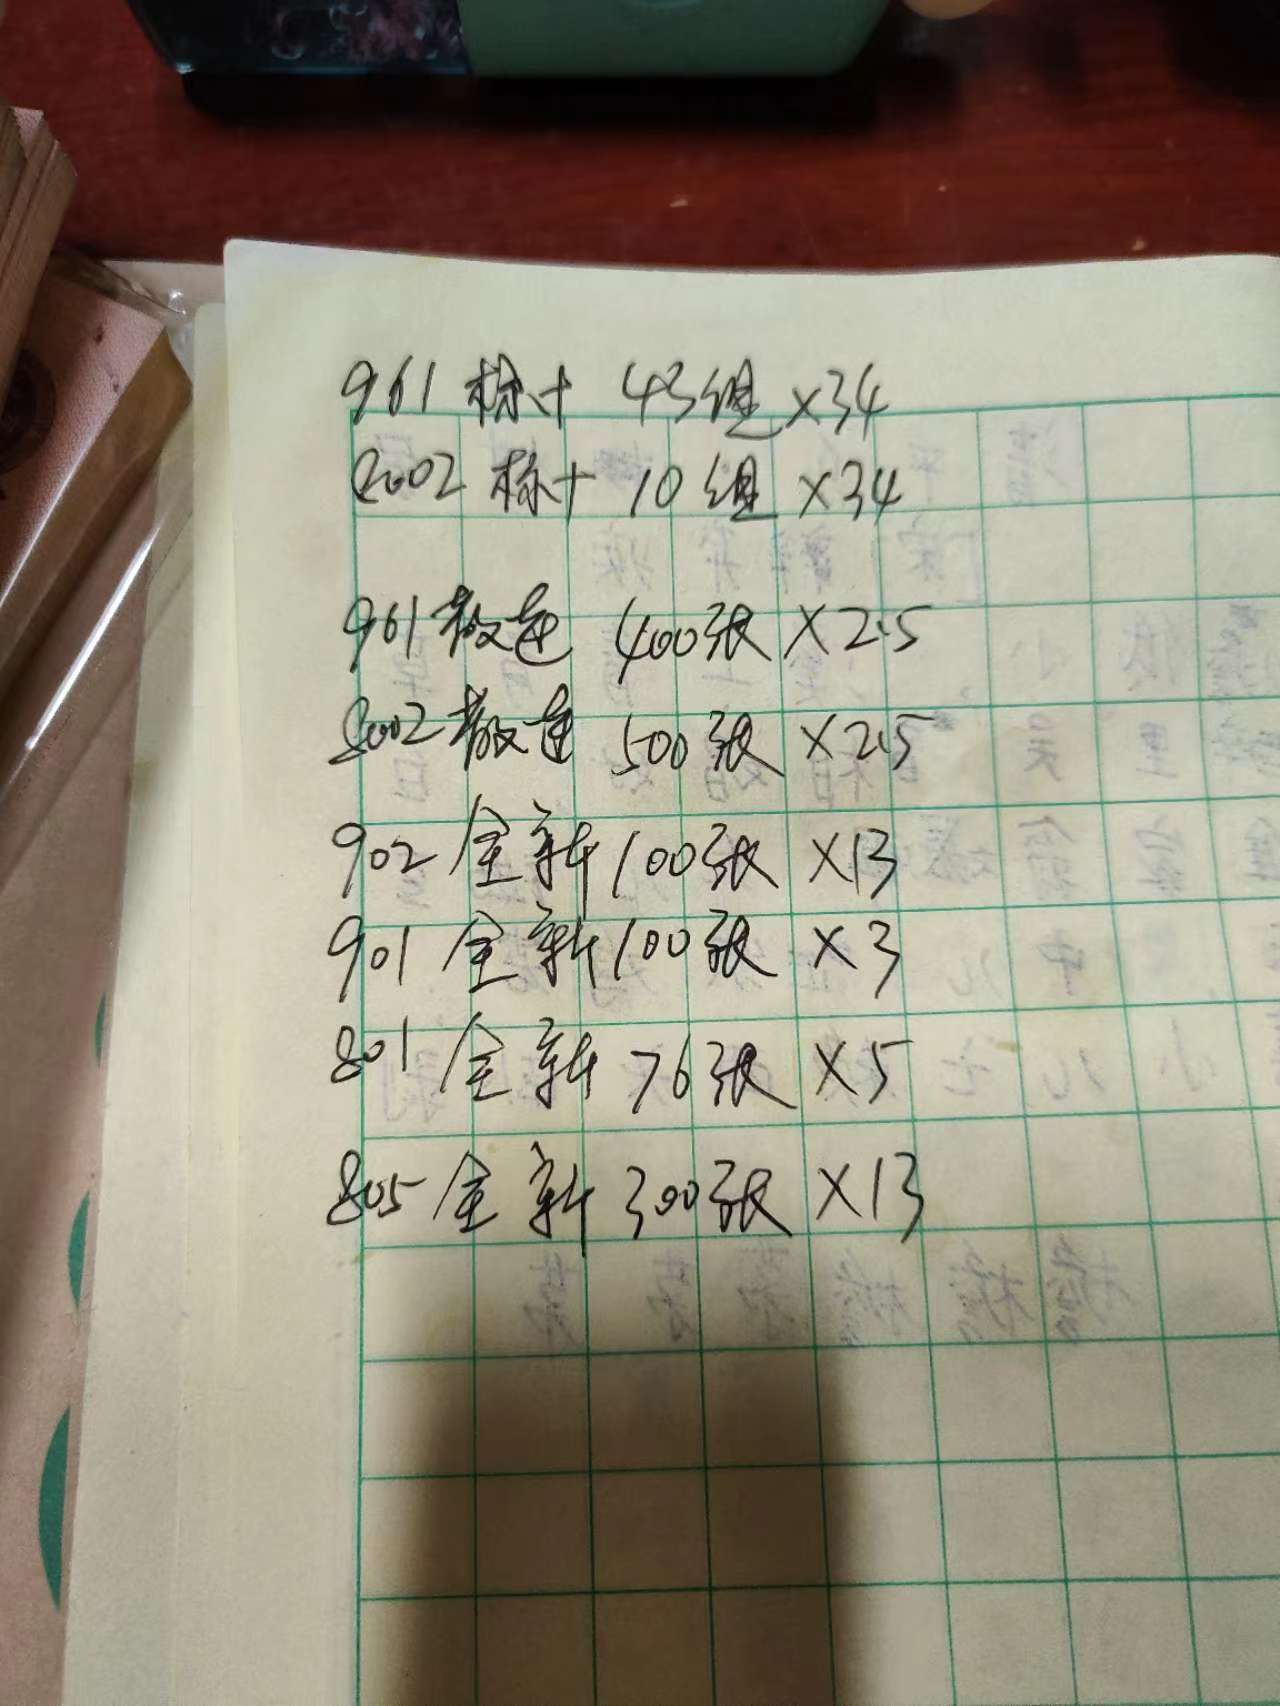 961 标十 43组 ×34
8002 标十 10组 ×34
961 散连 400张 ×2.5
8002 散连 500张 ×2.5
902 全新 100张 ×13
901 全新 100张 ×3
801 全新 76张 ×5
805 全新 300张 ×13